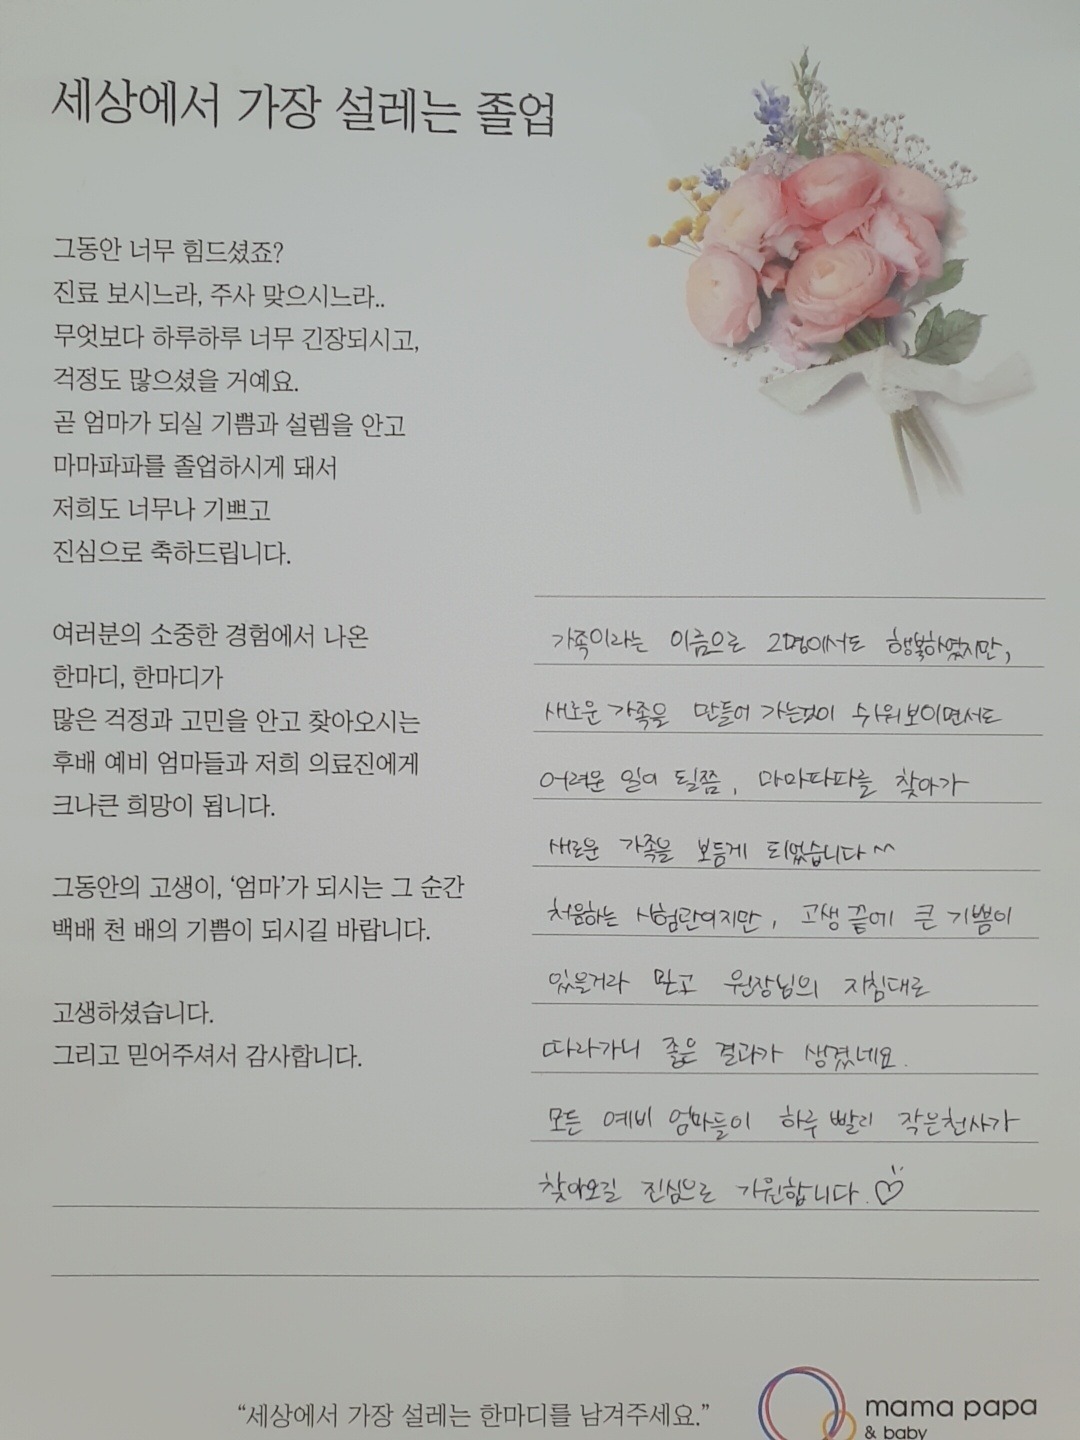 세상에서 가장 설레는 졸업
그동안 너무 힘드셨죠?
진료 보시느라, 주사 맞으시느라..
무엇보다 하루하루 너무 긴장되시고,
걱정도 많으셨을 거예요.
곧 엄마가 되실 기쁨과 설렘을 안고
마마파파를 졸업하시게 돼서
저희도 너무나 기쁘고
진심으로 축하드립니다.
여러분의 소중한 경험에서 나온
한마디, 한마디가
많은 걱정과 고민을 안고 찾아오시는
후배 예비 엄마들과 저희 의료진에게
크나큰 희망이 됩니다.
그동안의 고생이, ‘엄마’가 되시는 그 순간
백배 천 배의 기쁨이 되시길 바랍니다.
고생하셨습니다.
그리고 믿어주셔서 감사합니다.
가족이라는 이름으로 2명이서도 행복하였지만,
새로운 가족을 만들어 가는것이 쉬워보이면서도
어려운 일이 될쯤, 마마파파를 찾아가
새로운 가족을 보듬게 되었습니다^^
처음하는 시험관이지만, 고생 끝에 큰 기쁨이
있을거라 믿고 원장님의 지침대로
따라가니 좋은 결과가 생겼네요.
모든 예비 엄마들이 하루 빨리 작은천사가
찾아오길 진심으로 기원합니다.♡
“세상에서 가장 설레는 한마디를 남겨주세요.”
mama papa
& baby